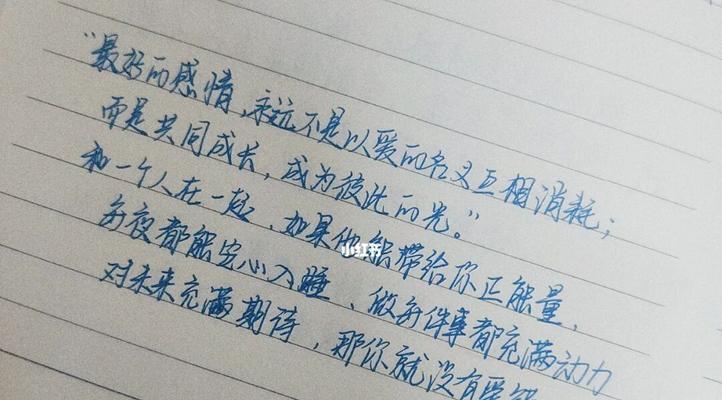 “最好的感情,永远不是以爱的名义互相消耗;
而是共同成长,成为彼此的光。”
和一个人在一起、如果他能带给你正能量、
每夜都能安心入睡、做每件事都充满动力
对未来充满期待,那你就没有爱错
小红书